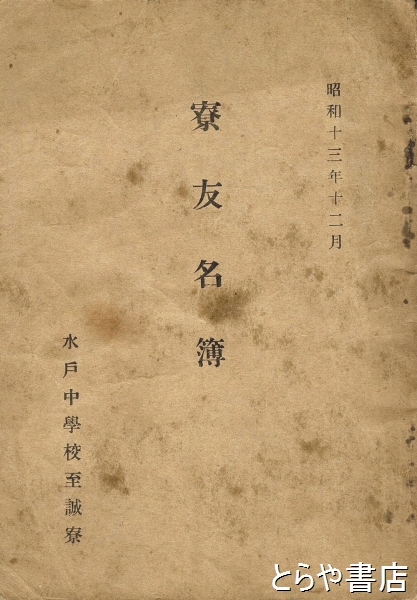 昭和十三年十二月
寮友名簿
水戸中學校至誠寮
とらや書店